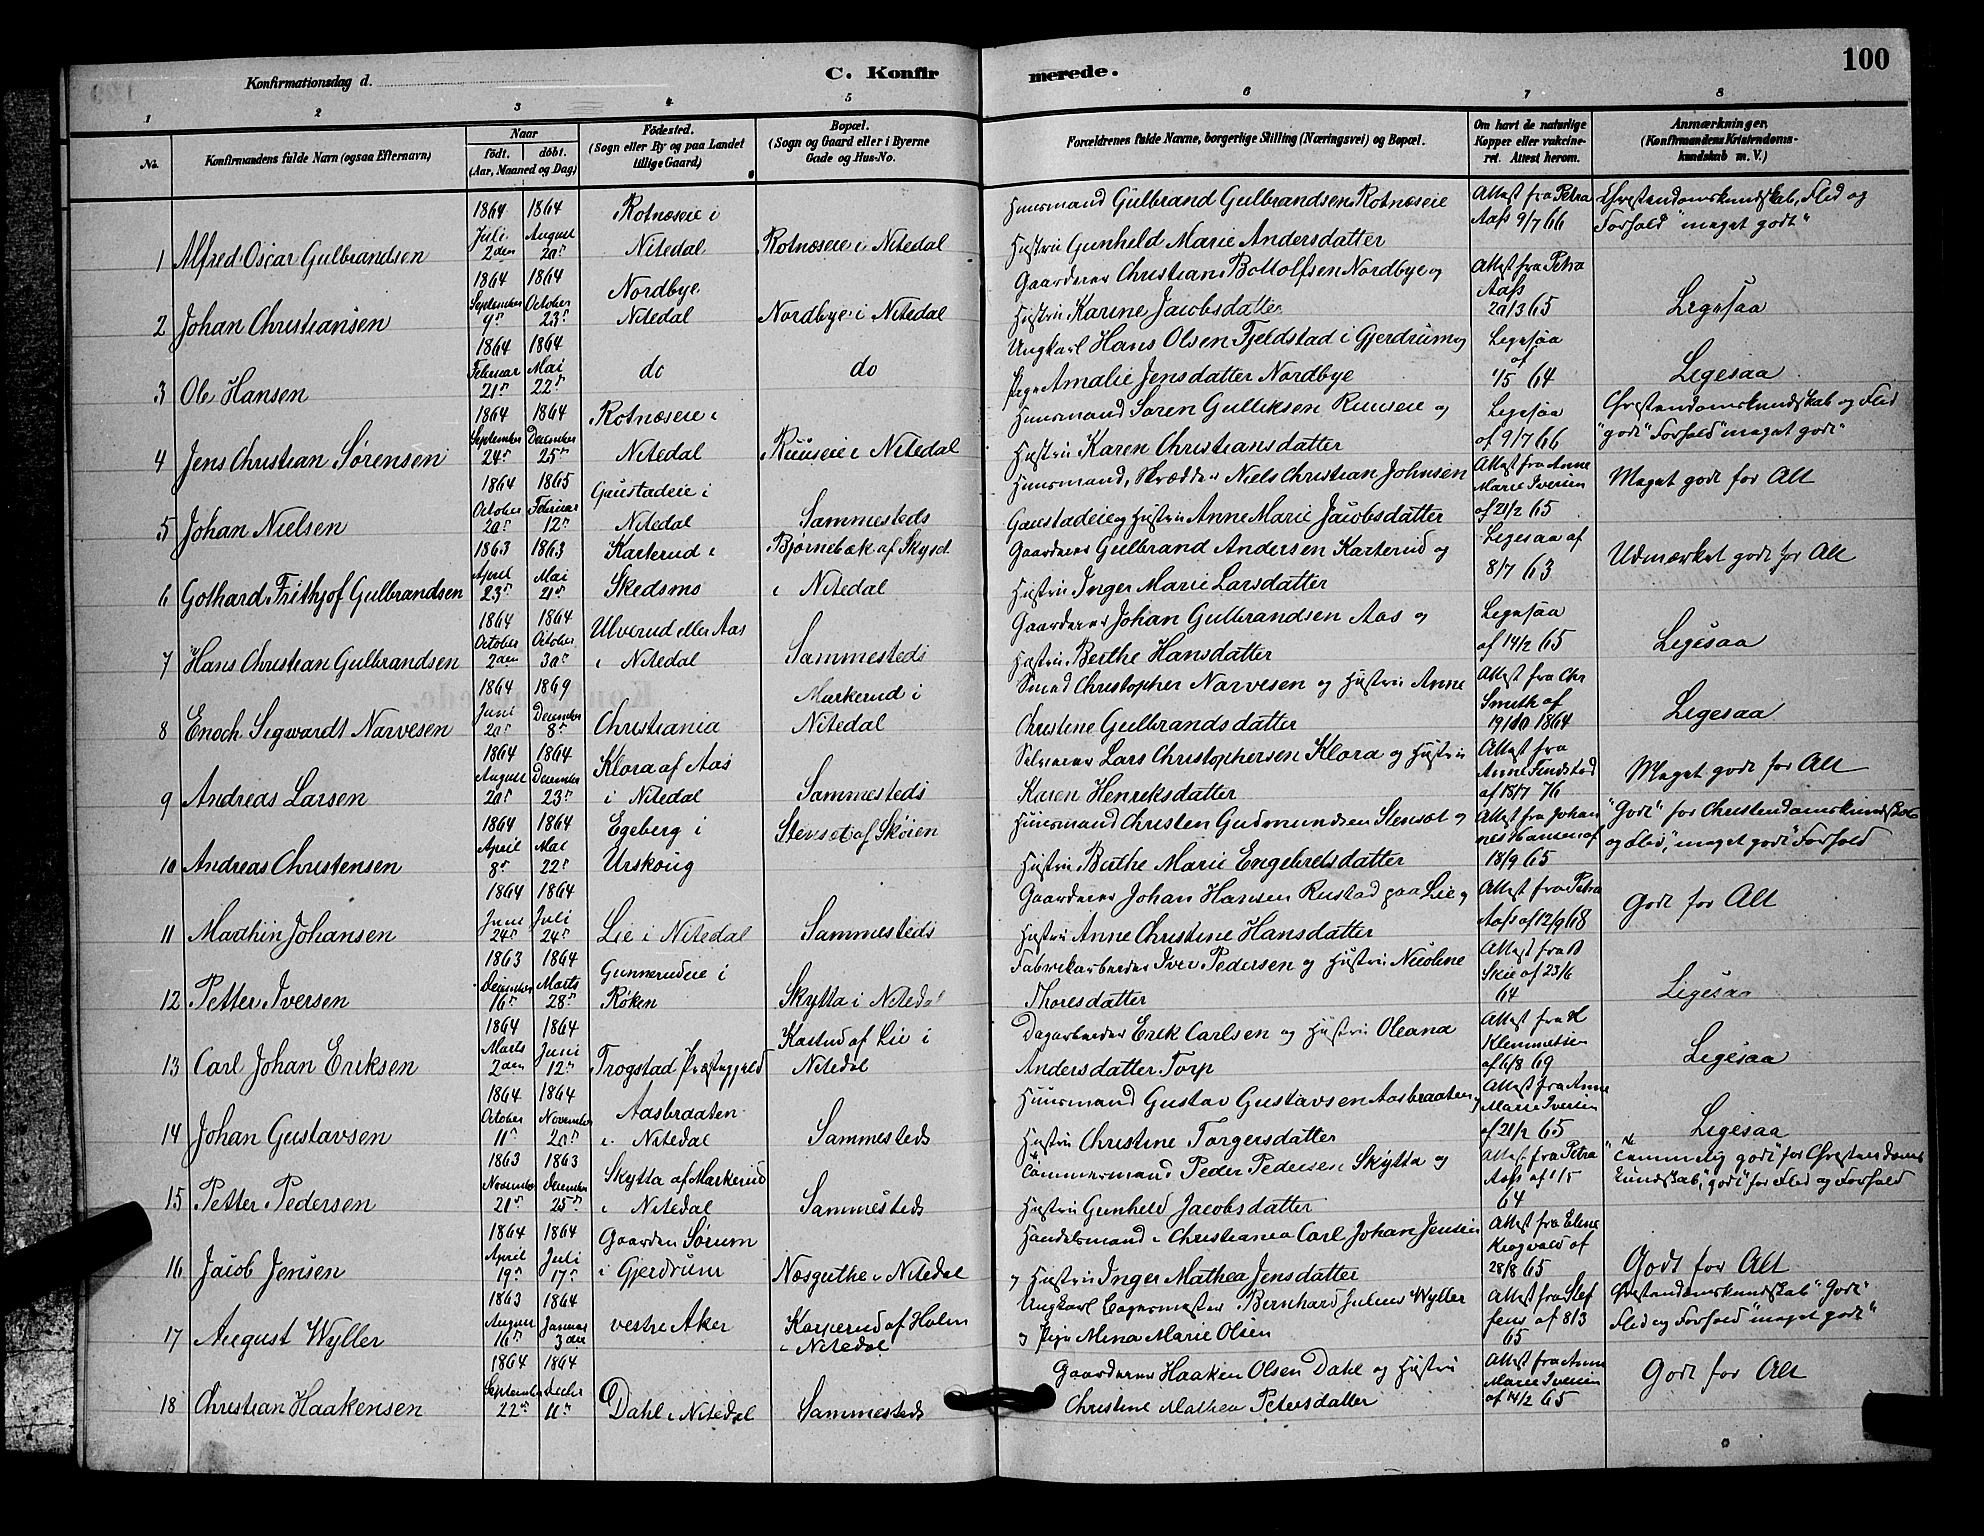 100
Konfirmationsdag d.
C. Konfir
merede.
1 2 3 4 5 6 7 8
No.
Konfirmandens fulde Navn (ogsaa Efternavn)
Naar
født. døbt.
(Aar, Maaned og Dag)
Fødested.
(Sogn eller By og paa Landet
tillige Gaard)
Bopæl.
(Sogn og Gaard eller i Byerne
Gade og Hus-No.
Forældrenes fulde Navne, borgerlige Stilling (Næringsvei) og Bopæl.
Om havt de naturlige
Kopper eller vakcine-
ret. Attest herom.
Anmærkninger.
(Konfirmandens Kristendoms-
kundskab m. V.)
1 Alfred Oscar Gulbrandsen
1864 Juli 2den
1864 August 20de
Rotnæseie i
Nitedal
Rotnæseie i Nitedal
Huusmand Gulbrand Gulbrandsen Rotnæseie
Hustru Gunhild Marie Andersdatter
Attest fra Petra
Aass 9/7 66
Christendomskundskab, Flid og
Forhold "meget godt"
2 Johan Christiansen
1864 September 9de
1864 October 23de
Nordbye
Nitedal
Nordbye i Nitedal
Gaardener Christian Bottolfsen Nordbye og
Hustru Karine Jacobsdatter
Attest fra Petra
Aass
20/3 65
Ligesaa
3 Ole Hansen
1864 Februar 21de
1864 Mai 22de
do
do
Ungkarl Hans Olsen Fjeldstad i Gjerdrum og
Pige Amalie Jensdatter Nordbye
Ligesaa
af
1/5 64
Ligesaa
4 Jens Christian Sørensen
1864 September 24de
1864 December 25de
Rotnæseie i
Nitedal
Ruuseie i Nitedal
Huusmand Søren Gulliksen Ruuseie og
Hustru Karen Christiansdatter
Ligesaa
af 9/7 66
Christendomskundskab og Flid
"godt" Forhold "meget godt"
5 Johan Nielsen
1864 October 20de
1865 Februar 12de
Gaustadeie i
Nitedal
Sammesteds
Huusmand, Skrædder Niels Christian Johnsen
Gaustadeie og Hustru Anne Marie Jacobsdatter
Attest fra Anne
Marie Iversen
af 21/2 65
Meget godt for Alt
6 Gothard Frithjof Gulbrandsen
1863 April 23de
1863 Mai 21de
Karterud i
Skedsmo
Bjørnebæk af Skyset
i Nitedal
Gaardener Gulbrand Andersen Karterud og
Hustru Inger Marie Larsdatter
Ligesaa af
8/7 63
Udmærket godt for Alt
7 Hans Christian Gulbrandsen
1864 October 2den
1864 October 30de
Ulverud eller Aas
i Nitedal
Sammesteds
Gaardener Johan Gulbrandsen Aas og
Hustru Berthe Hansdatter
Ligesaa
af 14/2 65
Ligesaa
8 Enoch Sigwardt Narvesen
1864 Juni 20de
1869 December 8de
Christiania
Markerud i
Nitedal
Smed Christopher Narvesen og Hustru Anne
Christine Gulbrandsdatter
Attest fra Chr
Smith af
19/10 1864
Ligesaa
9 Andreas Larsen
1864 August 20de
1864 December 23de
Klora af Aas
i Nitedal
Sammesteds
Selveier Lars Christophersen Klora og Hustru
Karen Henriksdatter
Attest fra
Anne Findstad
af 18/7 76
Meget godt for Alt
10 Andreas Christensen
1864 April 8de
1864 Mai 22de
Egeberg i
Urskoug
Stenset af Skøien
Huusmand Christen Gudmundsen Stenset og
Hustru Berthe Marie Engebretsdatter
Attest fra Johan
nes Hansen af
18/9 65
"Godt" for Christendomskundskab
og Flid, "meget godt" Forhold
11 Marthin Johansen
1864 Juni 24de
1864 Juli 24de
Lie i Nitedal
Sammesteds
Gaardener Johan Hansen Rustad paa Lie og
Hustru Anne Christine Hansdatter
Attest fra Petra
Aass af 12/9 68
Godt for Alt
12 Petter Iversen
1863 December 16de
1864 Marts 28de
Gunnerudeie i
Røken
Skytta i Nitedal
Fabrikarbeider Iver Pedersen og Hustru Nicoline
Thoresdatter
Attest fra
Skie af 23/6
64
Ligesaa
13 Carl Johan Eriksen
1864 Marts 2den
1864 Juni 12de
Trøgstad Præstegjeld
Kastud af Lie i
Nitedal
Dagarbeider Erik Carlsen og Hustru Oleana
Andersdatter Torp
Attest fra H
Klemmetsen
af 6/8 69
Ligesaa
14 Johan Gustavsen
1864 October 11de
1864 November 20de
Aasbraaten
i Nitedal
Sammesteds
Huusmand Gustav Gustavsen Aasbraaten og
Hustru Christine Torgersdatter
Attest fra Anne
Marie Iversen
af 21/2 65
Ligesaa
15 Petter Pedersen
1863 November 21de
1863 December 25de
Skytta af Markerud
i Nitedal
Sammesteds
Tømmermand Peder Pedersen Skytta og
Hustru Gunhild Jacobsdatter
Attest fra Petra
Aass af 1/5
64
"Temmelig godt" for Christendoms
kundskab, "godt" for Flid og Forhold
16 Jacob Jensen
1864 April 19de
1864 Juli 17de
Gaarden Sørum
i Gjerdrum
Næsguthe i Nitedal
Handelsmand i Christiania Carl Johan Jensen
og Hustru Inger Mathea Jensdatter
Attest fra Elene
Krogvold af
28/8 65
Godt for Alt
17 August Wyller
1863 August 16de
1864 Januar 3die
vestre Aker
Kasperud af Holm
i Nitedal
Ungkarl Bernhard Julius Wyller
og Pige Mina Marie Olsen
Attest fra Stef
fens af 8/3
65
Christendomskundskab "Godt"
Flid og Forhold "meget godt"
18 Christian Haakensen
1864 September 22de
1864 Decbr 11de
Dahl i Nitedal
Sammesteds
Gaardener Haaken Olsen Dahl og Hustru
Christine Mathea Petersdatter
Attest fra Anne
Marie Iversen
af 14/2 65
Godt for Alt